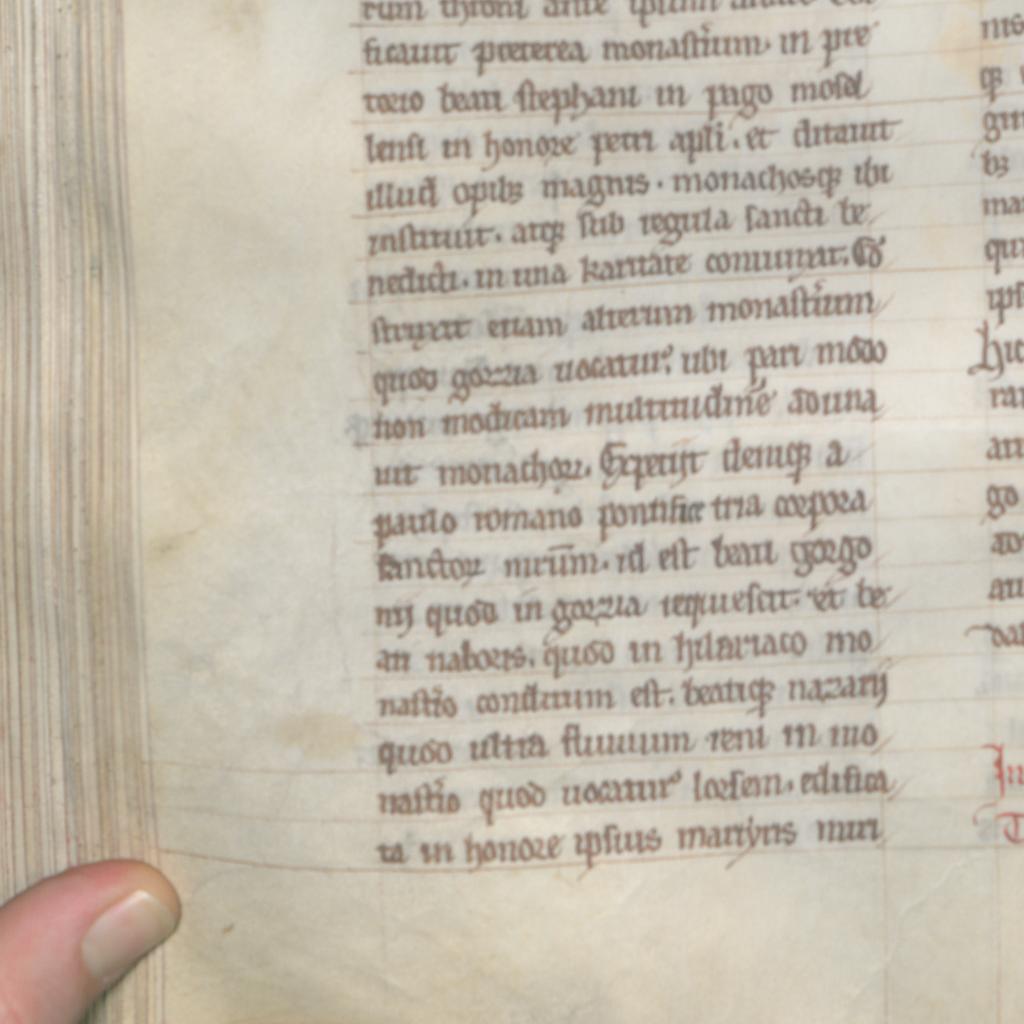 rum throni ante ipsum altare edi
ficauit preterea monastium. in pre
torio beati stephani in pago mosel
lensi in honore petri apli. et ditauit
illud opib; magnis. monachosq; ibi
instituit. atq; sub regula sancti be
nedicti. in una karitate coniunxit. Co
struxit etiam alterum monastium
quod gorzia uocatur. ubi pari modo
non modicam multitudine aduna
uit monachoꝝ. Expetiit deniq; a
paulo romano pontifice tria corpora
sanctoꝝ mrum. id est beati gorgo
nij quod in gorzia requiescit. et be
ati naboris. quod in hilariaco mo
nastio conditum est. beatiq; nazarij
quod ultra fluuium reni in mo
nastio quod uocatur lorsem. edifica
ta in honore ipsius martyris miri
nts
q;
gui
b;
ma
qui
ips
hic
rar
an
go
ao
au
dat
In
T